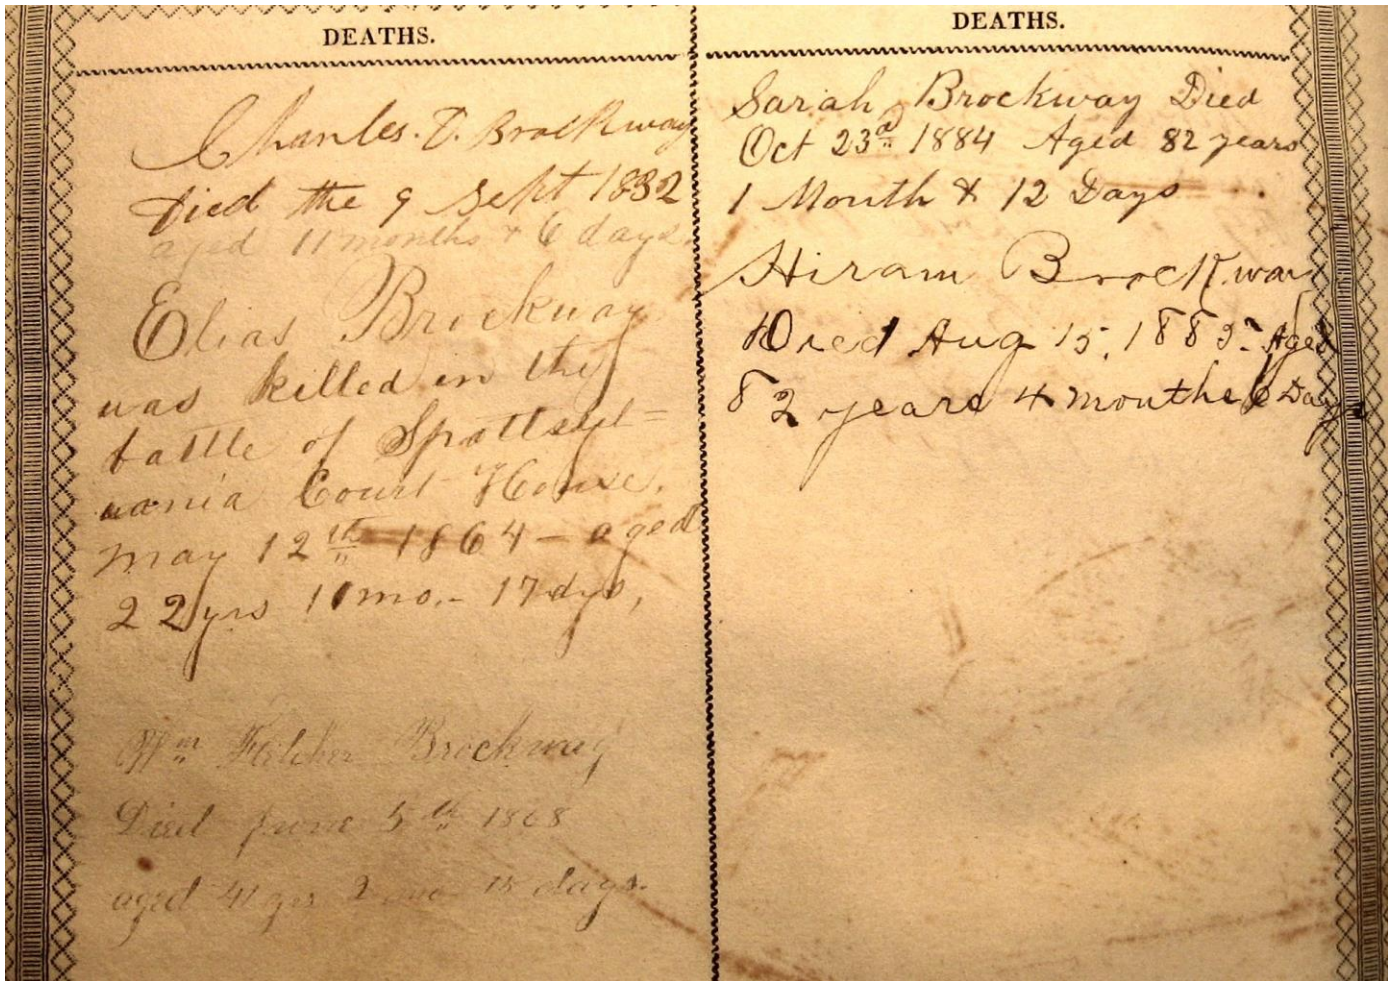 DEATHS.
Charles. D. Brockway
Died the 9 Sept 1832
aged 11 months & 6 days.
Elias Brockway
was killed in the
battle of Spottsyl=
vania Court House.
May 12th 1864 - aged
22 yrs 11 mo. - 17 dys,
Wm Fletcher Brockway
Died June 5th 1868
aged 41 yrs 2 mo 15 days.
DEATHS.
Sarah Brockway Died
Oct 23d 1884 Aged 82 years
1 Month & 12 Days
Hiram Brockway
Died Aug 15, Aged
82 years 4 months 6 Days